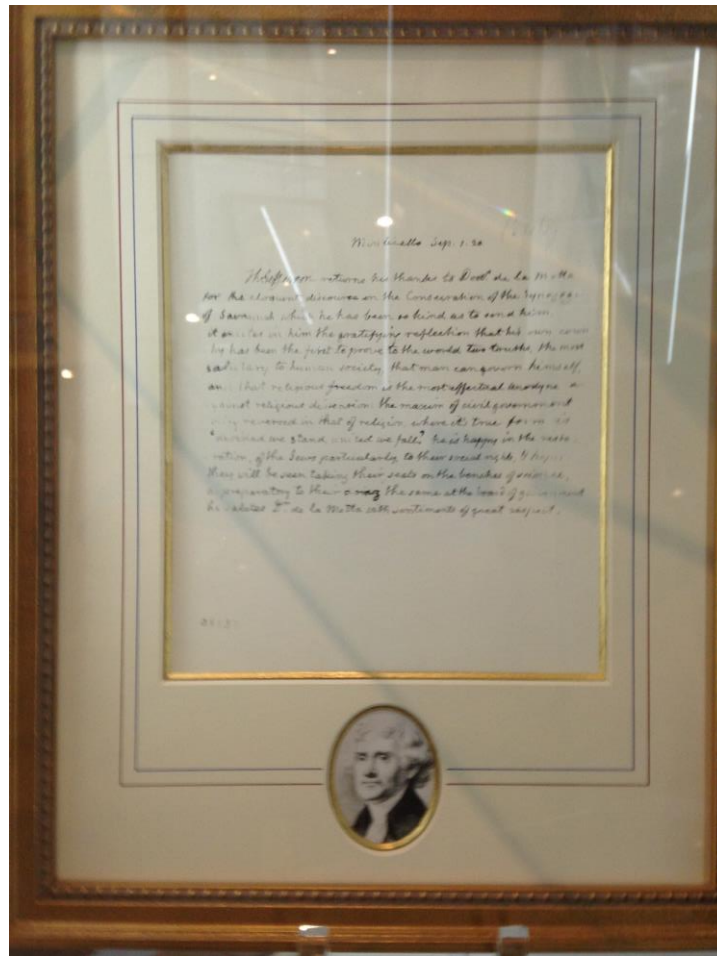 Monticello Sep. 1. 20
Th Jefferson returns his thanks to Doctr de la Motta
for the eloquent discourse on the Consecration of the Synagogue
of Savannah which he has been so kind as to send him.
it excites in him the gratifying reflection that his own coun
try has been the first to prove to the world two truths, the most
salutary to human society, that man can govern himself,
and that religious freedom is the most effectual anodyne a
gainst religious dissension: the maxim of civil government
being reversed in that of religion, where it's true form is
"divided we stand, united we fall." he is happy in the resto
ration, of the Jews particularly, to their social rights, & hopes
they will be seen taking their seats on the benches of science,
as preparatory to their the same at the board of government
he salutes Dr. de la Motta with sentiments of great respect.